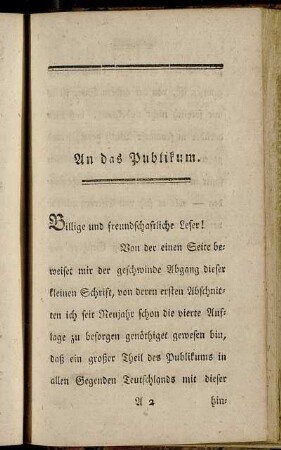 An das Publikum.
Billige und freundschaftliche Leser!
Von der einen Seite be-
weiset mir der geschwinde Abgang dieser
kleinen Schrift, von deren ersten Abschnit-
ten ich seit Neujahr schon die vierte Auf-
lage zu besorgen genöthiget gewesen bin,
daß ein großer Theil des Publikums in
allen Gegenden Teutschlands mit dieser
A 2 hin-